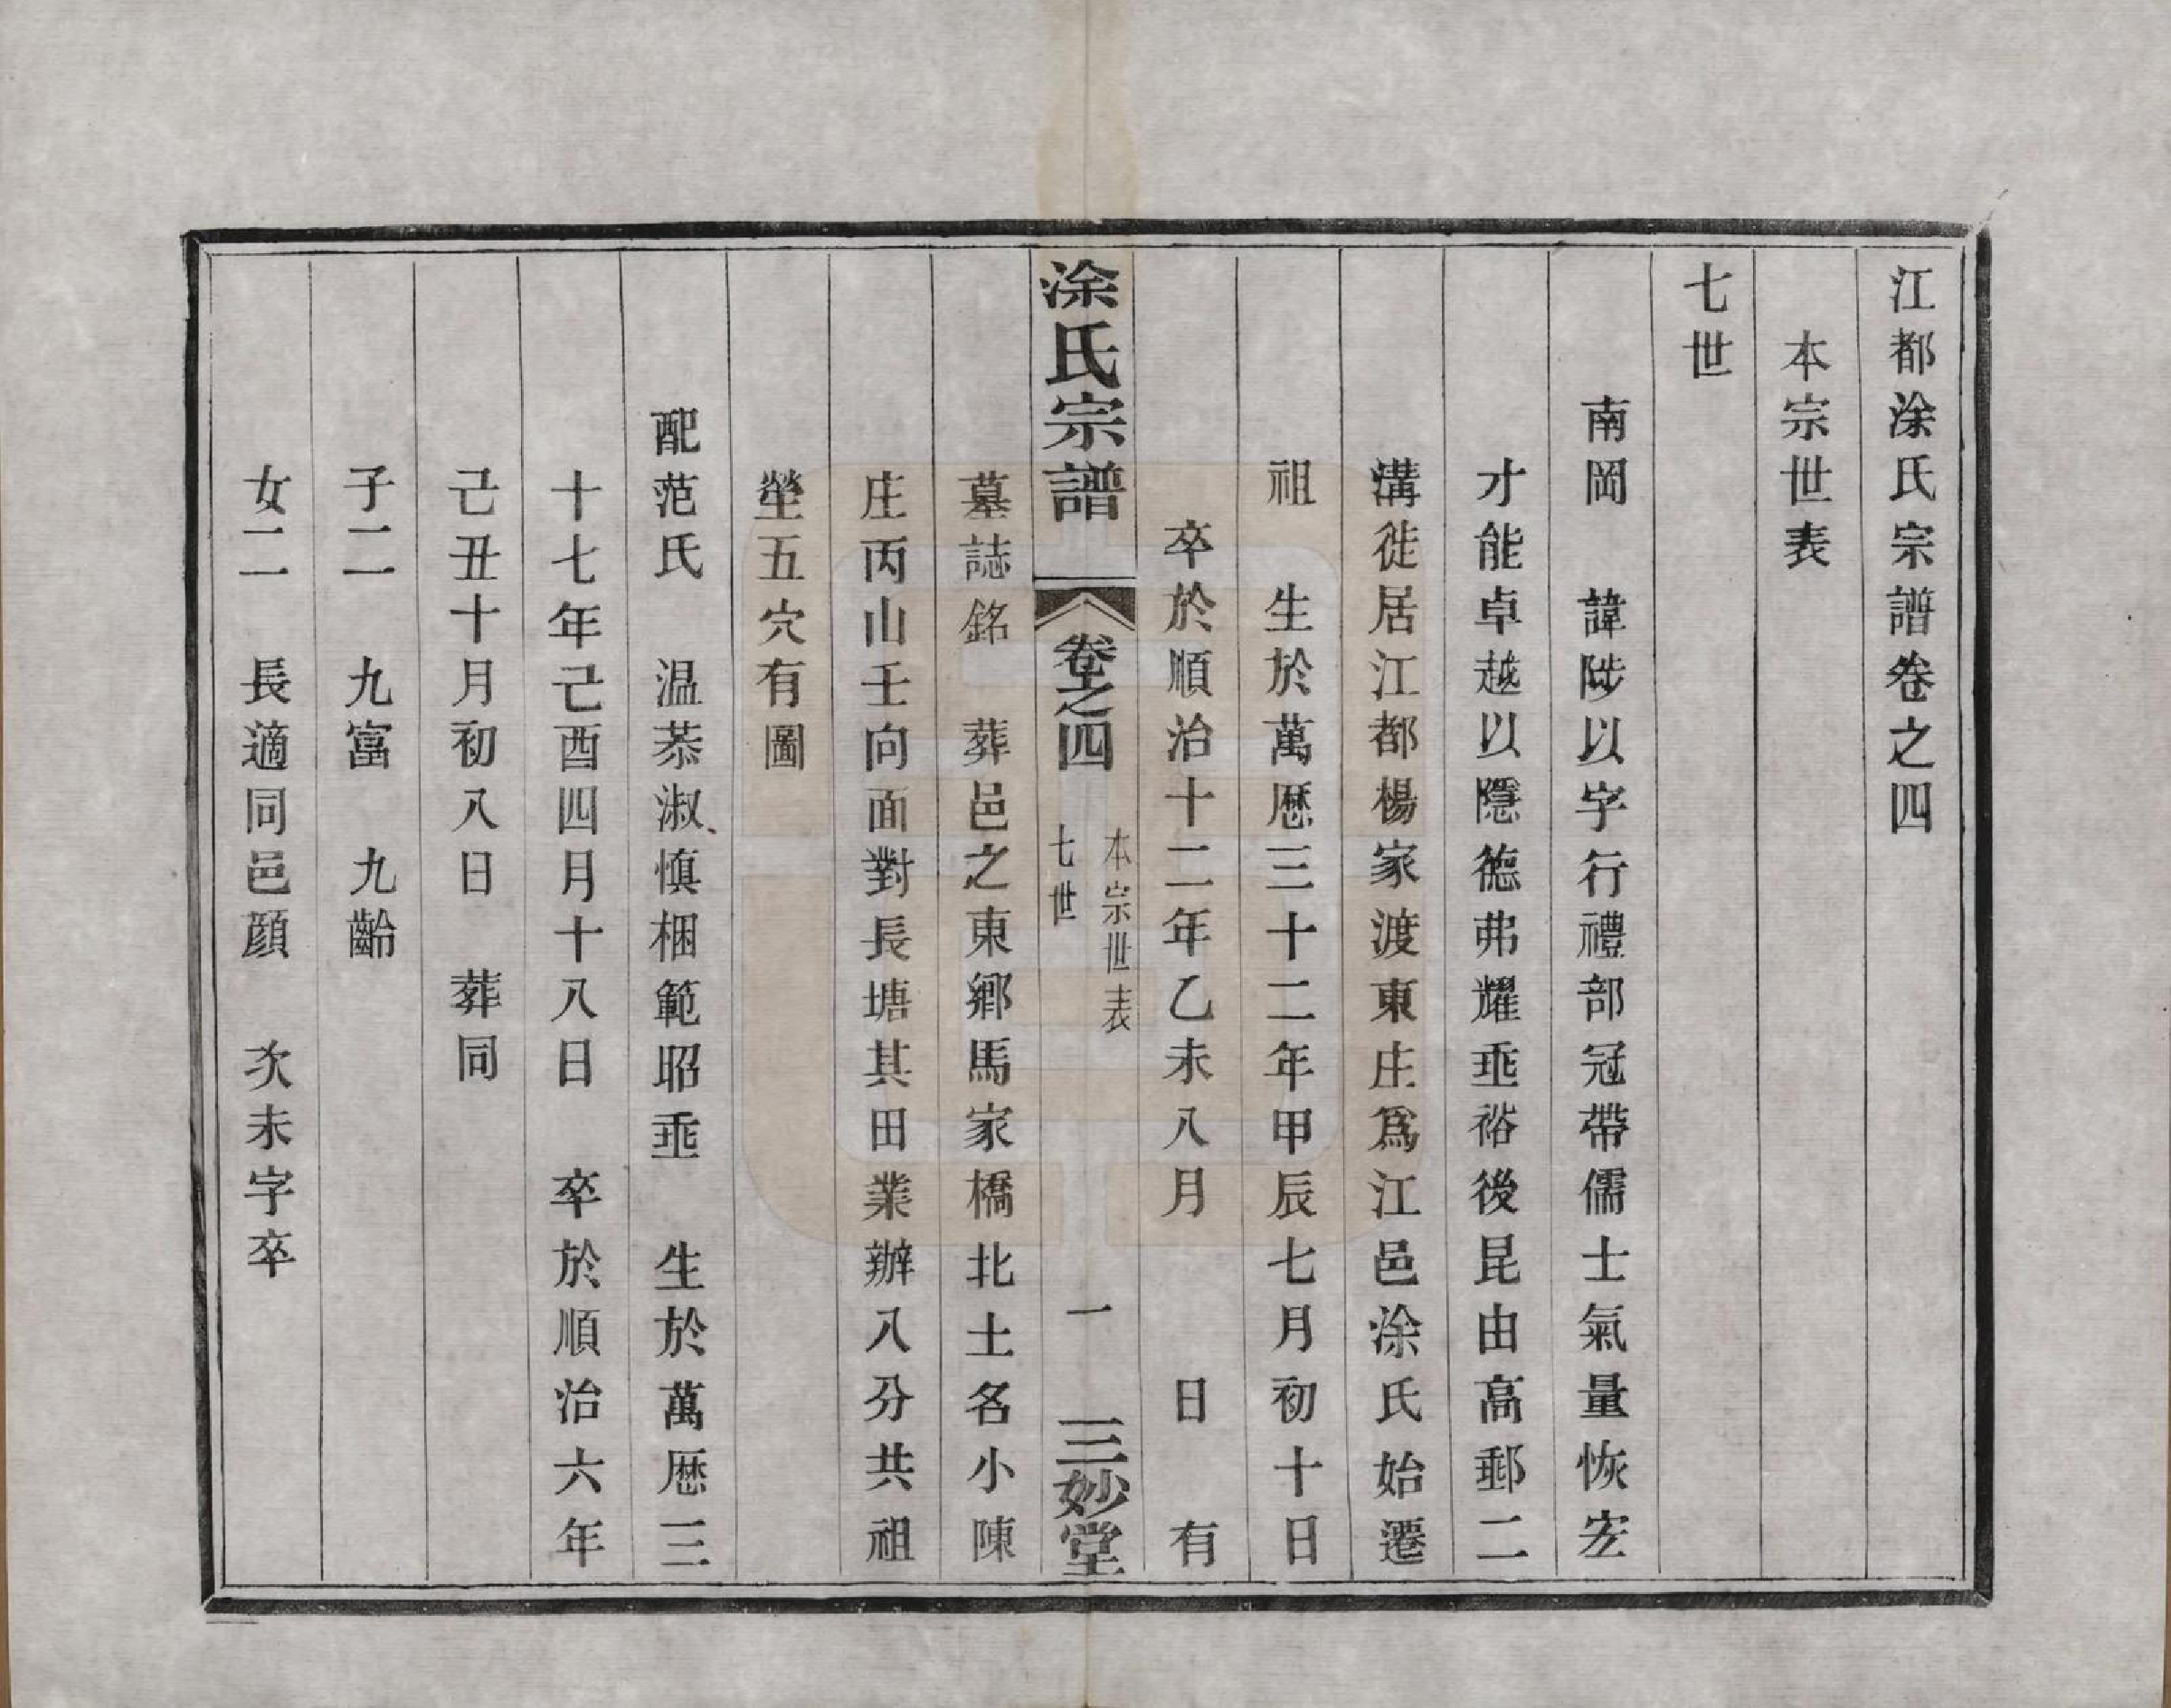 江都涂氏宗譜卷之四
本宗世表
七世
南岡　諱陟以字行禮部冠帶儒士氣量恢宏
才能卓越以隱德弗耀垂裕後昆由高郵二
溝徙居江都楊家渡東庄爲江邑涂氏始遷
祖　生於萬歷三十二年甲辰七月初十日
卒於順治十二年乙未八月　　日　有
涂氏宗譜　卷之四　本宗世表　七世　一　三妙堂
墓誌銘　葬邑之東鄉馬家橋北土名小陳
庄丙山壬向面對長塘其田業辦八分共祖
塋五穴有圖
配范氏　温恭淑慎梱範昭垂　生於萬歷三
十七年己酉四月十八日　卒於順治六年
己丑十月初八日　葬同
子二　九富　九齡
女二　長適同邑顏　次未字卒